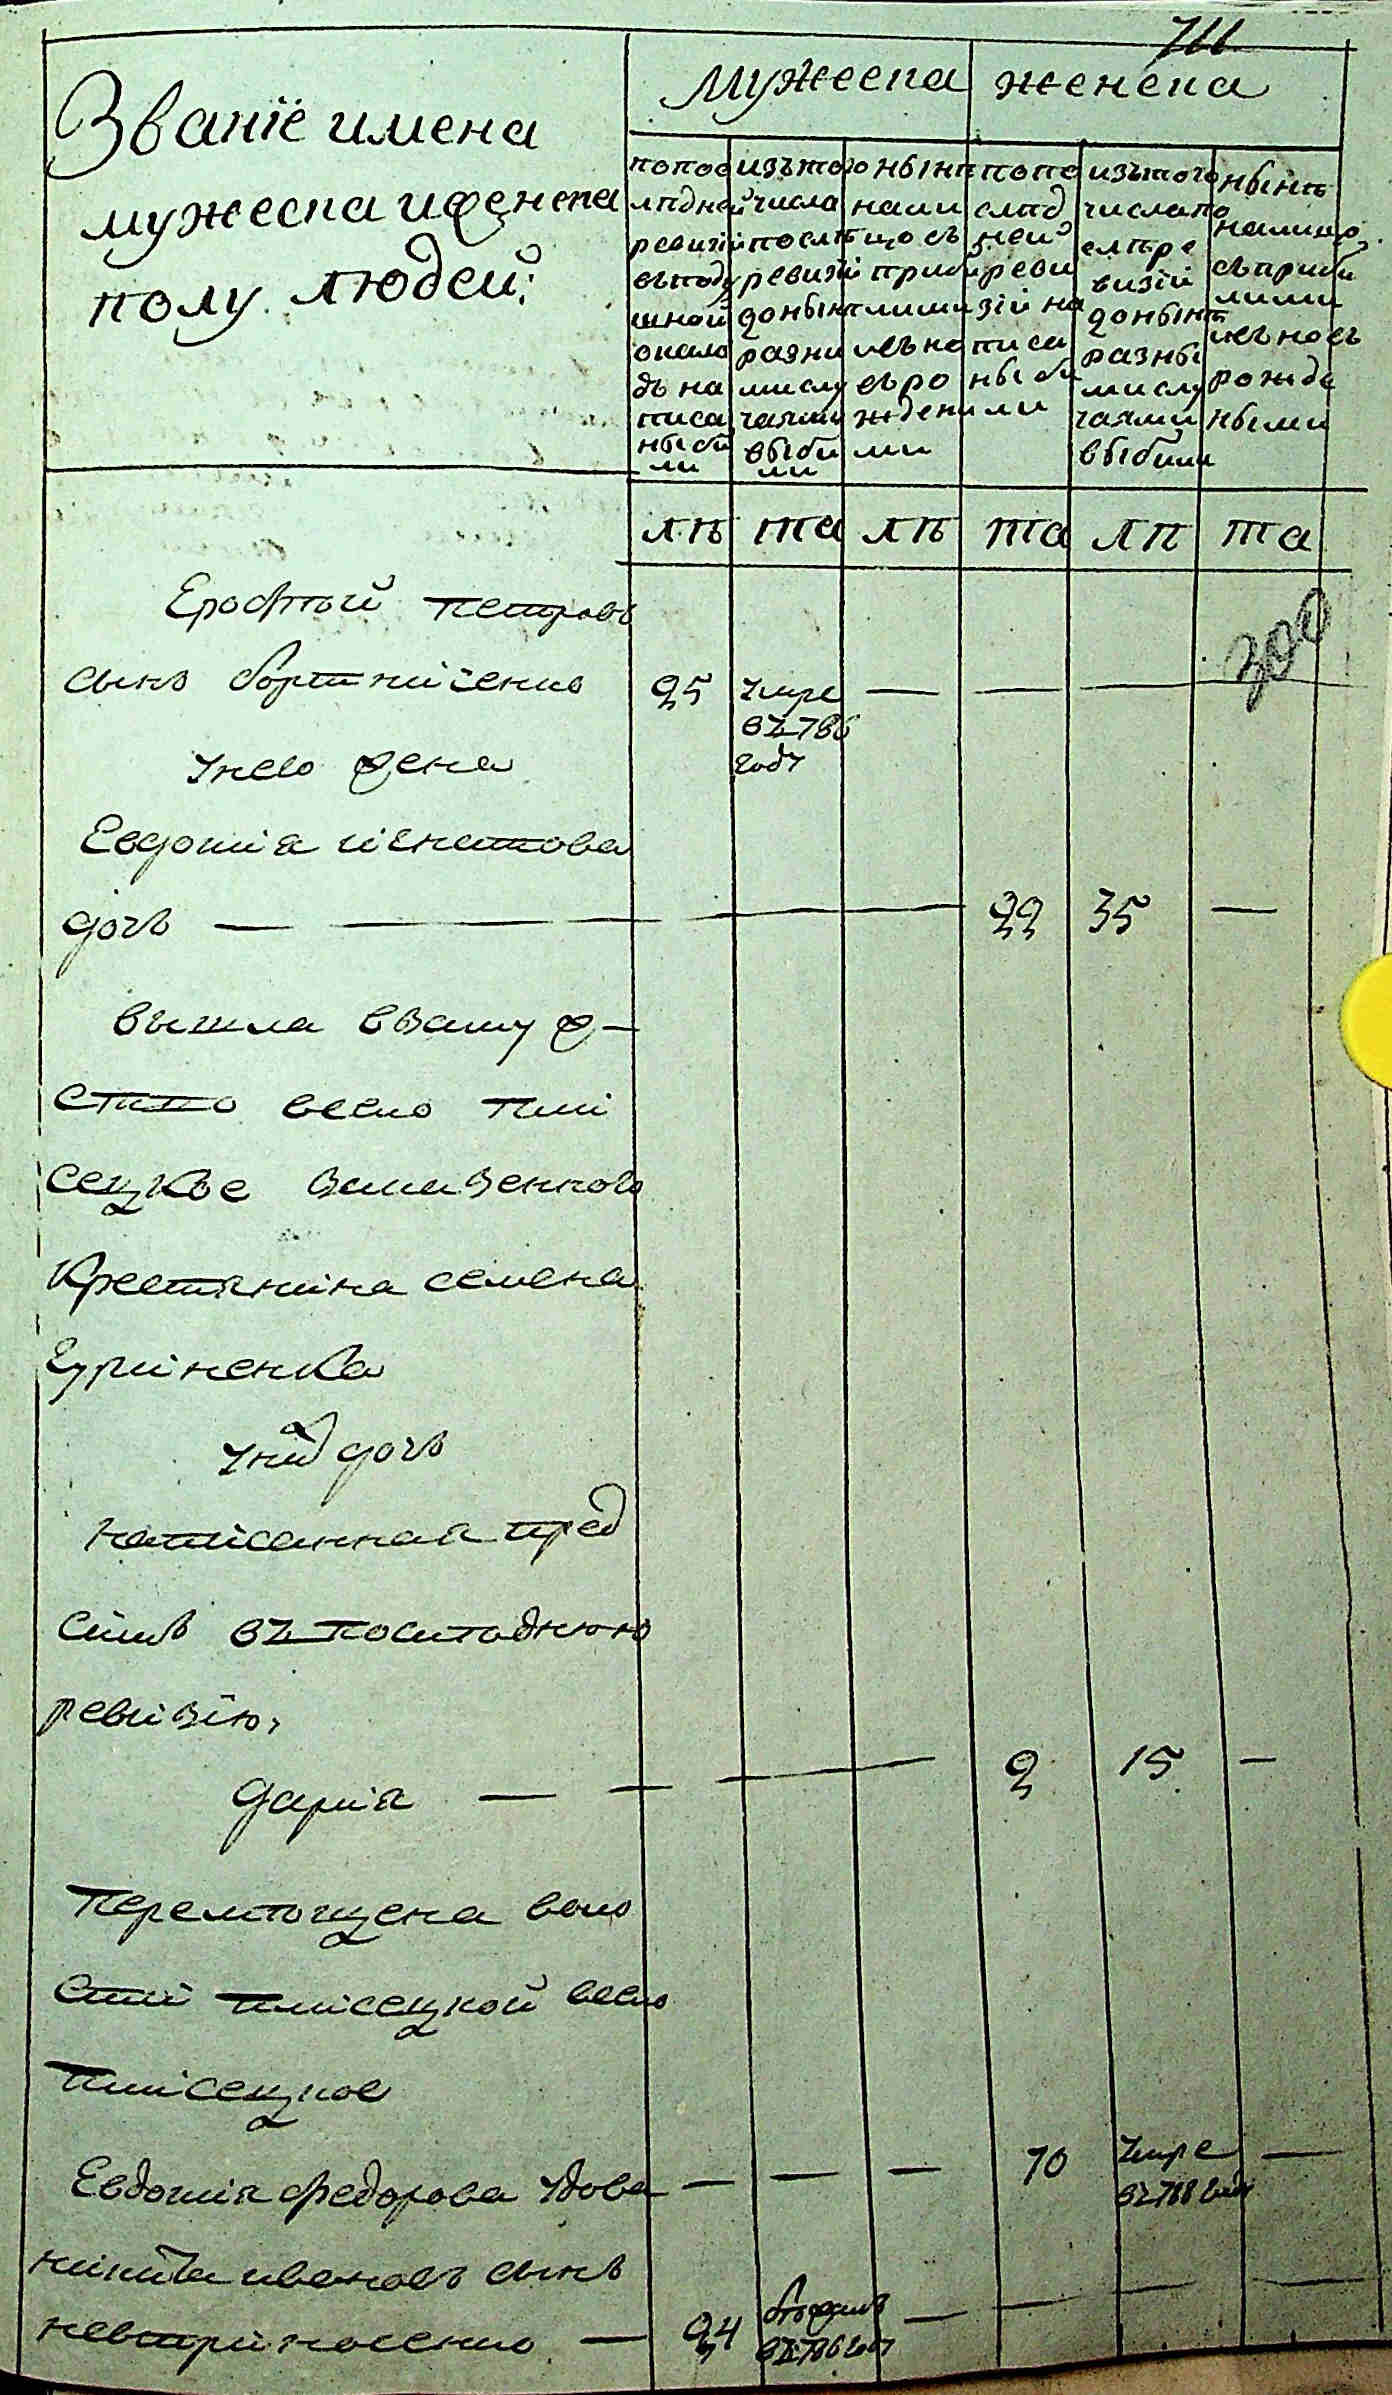 711
Званїе имена
мужеска иженска
полу людей:
мужеска женска
попос
лѣдней
ревизїи
въподу
шной
окала
дъ на
писа
ны бы
ли
изътого
числа
послѣ
ревизїи
донынѣ
разни
мислу
чаями
выбы
ли
нынѣ
нали
цо съ
приб
лими
исъно
въро
ждени
ми
попо
слѣд
ней
реви
зїи на
писа
ны бы
ли
изътого
числапо
слѣре
визїи
донынѣ
разны
мислу
чаями
выбыли
нынѣ
налицо
съприбы
лими
исъновъ
рожде
ными
лѣ та лѣ та лѣ та
300
Ерофѣй петровъ
сынъ бортниченко 25 умре — — — —
въ 786
году
унего жена
Евдокїя игнатова
дочь — — — — 22 35 —
вышла взамуже
ство всело плї
сецкое заказенного
крестянина семена
гуриненка
унїхъ дочь
написанная пред
симъ въ последнюю
ревизїю,
дарїя — — — — 2 15 —
перемѣщена воло
сти плїсецкой всело
плїсецкое
Евдокїя федорова удова — — — 70 умре —
въ 788 году
никита ивановъ сынъ
невтриносенко — 24 бѣжалъ — — — —
въ 786 году